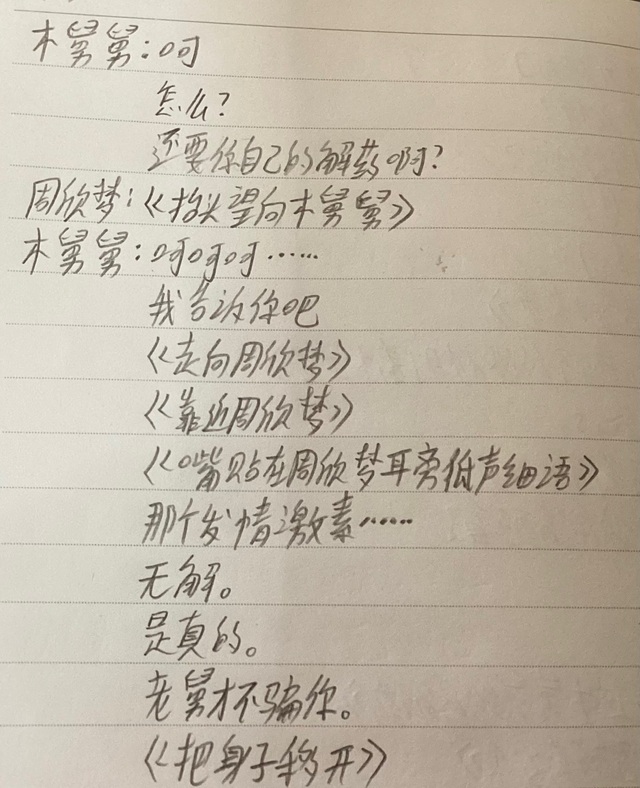 木舅舅:呵
怎么?
还要你自己的解药啊?
周欣梦:《抬头望向木舅舅》
木舅舅:呵呵呵……
我告诉你吧
《走向周欣梦》
《靠近周欣梦》
《嘴贴在周欣梦耳旁低声细语》
那个发情激素……
无解。
是真的。
老舅才不骗你。
《把身子移开》